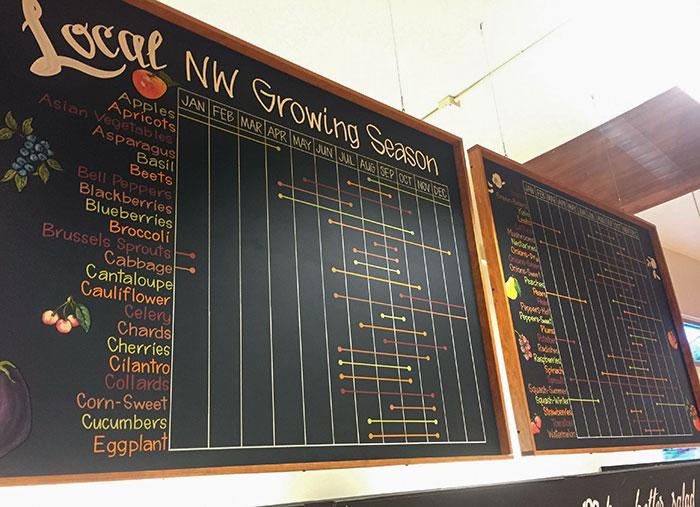 Local NW Growing Season
JAN FEB MAR APR MAY JUN JUL AUG SEP OCT NOV DEC
Apples
Apricots
Asian Vegetables
Asparagus
Basil
Beets
Bell Peppers
Blackberries
Blueberries
Broccoli
Brussels Sprouts
Cabbage
Cantaloupe
Cauliflower
Celery
Chards
Cherries
Cilantro
Collards
Corn-Sweet
Cucumbers
Eggplant
Mushrooms
Nectarines
Onions-Dry
Onions-Green
Onions-Sweet
Peaches
Pears
Peas
Peppers-Hot
Peppers-Sweet
Plums
Potatoes
Radishes
Raspberries
Spinach
Squash-Summer
Squash-Winter
Strawberries
Tomatoes
Watermelon
better salad